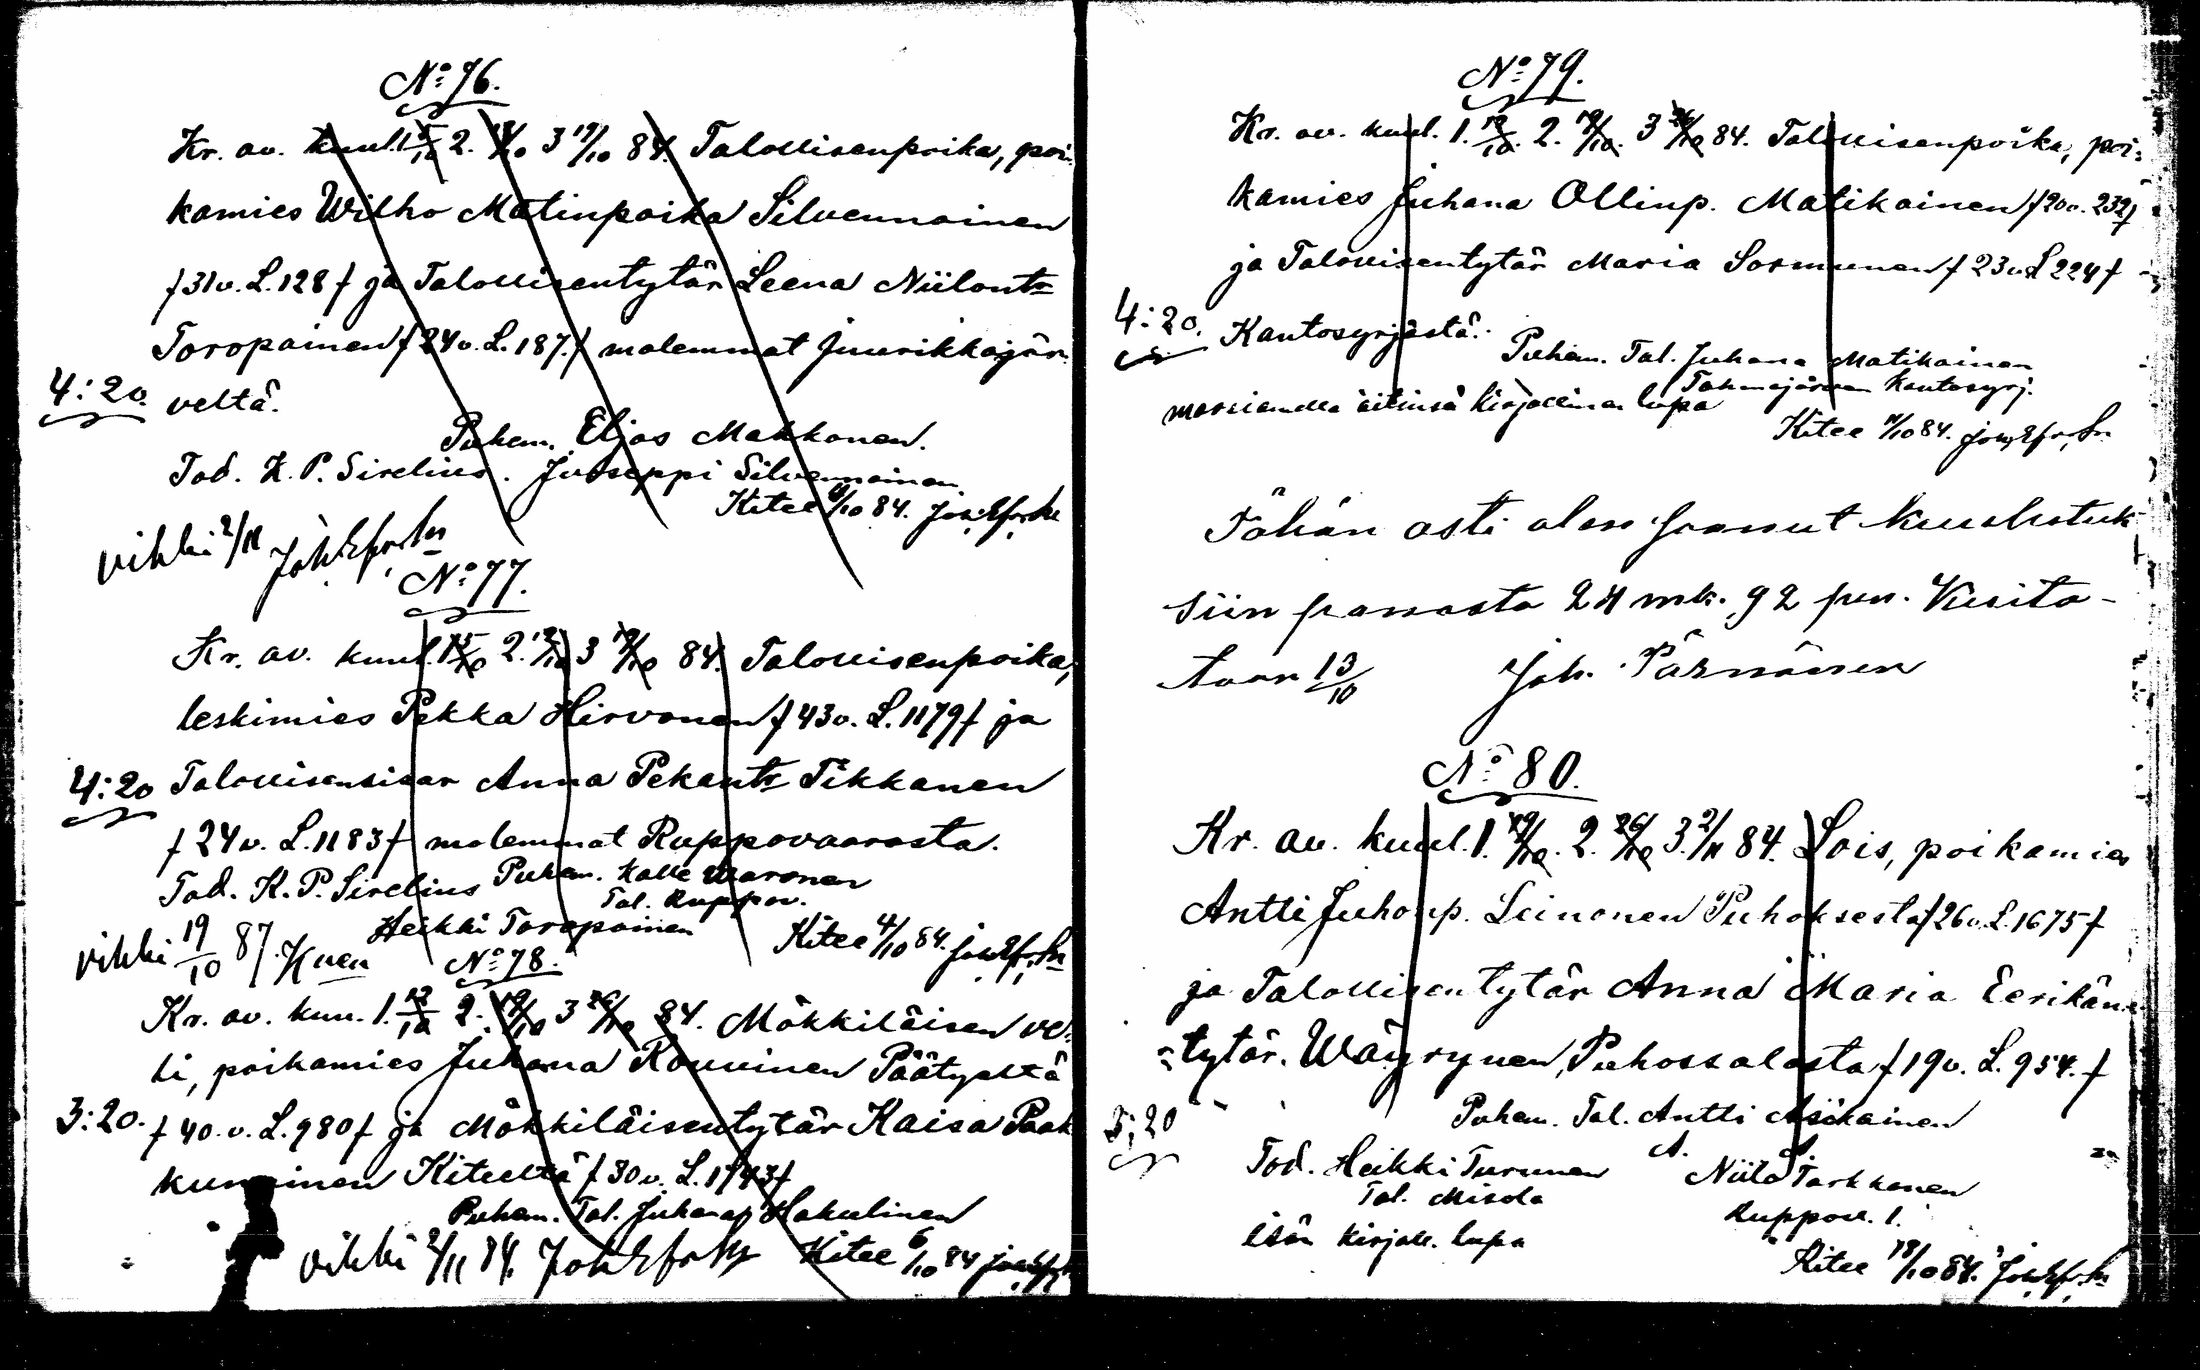 No: 76.
Kr. av. kuul. 1 5/10 2. 12/10 3 19/10 84. Talollisenpoika, poi-
kamies Wilho Matinpoika Silvennoinen
/31 v. L. 128/ ja Talollisentytär Leena Niilontr
Toropainen /24 v. L. 187./ molemmat Juurikkajär-
4:20. veltä.
Puhem. Eljas Makkonen.
Tod. K. P. Sirelius. Juoseppi Silvennoinen
Kitee 4/10 84.
vihki 2/11
No: 77.
Kr. av. kuul. 1 5/10 2. 12/10 3 19/10 84. Talollisenpoika,
leskimies Pekka Hirvonen /43 v. L. 1179/ ja
4:20 Talollisensisar Anna Pekantr Tikkanen
/24 v. L. 1183/ molemmat Ruppovaarasta.
Tod. K. P. Sirelius Puhem. Kalle Waronen
Tal. Ruppov.
Heikki Toropainen
Kitee 4/10 84.
vihki 19/10 87.
No: 78.
Kr. av. kuu. 1. 12/10 2. 19/10 3 26/10 84. Mökkiläisen ve-
li, poikamies Juhana Rouvinen Päätyeltä
3:20. /40. v. L. 980/ ja Mökkiläisentytär Kaisa Paak-
kunainen Kiteeltä /30 v. L. 1743/
Puhem. Tal. Juhana Hakulinen
vihki 2/11 84. Kitee 6/10 84
No: 79.
Kr. av. kuul. 1. 12/10. 2. 19/10. 3 26/10 84. Talollisenpoika, poi-
kamies Juhana Ollinp. Matikainen /20 v. 232/
ja Talollisentytär Maria Sormunen /23 v. L 224/
4:20. Kantosyrjästä.
Puhem. Tal. Juhana Matikainen
Tohmajärven Kantosyrj.
morsiamella äitinsä kirjallinen lupa
Kitee 4/10 84.
Tähän asti olen saanut kuulutuk-
siin panosta 24 mk. 92 pen. Kusita-
Joh. Pärnänen
13/10
No: 80.
Kr. av. kuul. 1. 19/10. 2. 26/10 3. 2/11 84. Lois, poikamies
Antti Juhonp. Leinonen Puhoksesta /26 v. L. 1675/
ja Talollisentytär Anna Maria Eerikän-
tytär. Wäyrynen, Puhossalosta /19 v. L. 954./
3:20
Puhem. Tal. Antti Asikainen
Tod. Heikki Turunen A. Niilo Tarkkonen
Tal. Misola Ruppov. 1.
isän kirjall. lupa
Kitee 18/10 84.